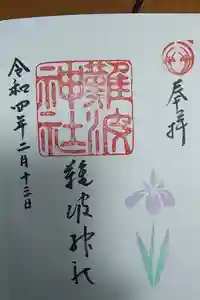 奉拝
難波神社
難波神社
令和四年二月十三日